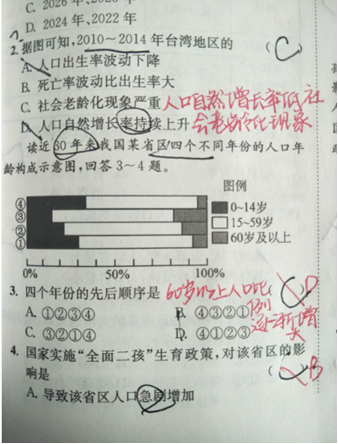 C. 2026年、2028年
D. 2024年、2022年
2.据图可知,2010~2014年台湾地区的 ( C
A. 人口出生率波动下降
B. 死亡率波动比出生率大
C. 社会老龄化现象严重 人口自然增长率低,社
D. 人口自然增长率持续上升 会老龄化现象
读近30年来我国某省区四个不同年份的人口年
龄构成示意图,回答3~4题。
图例
④ 0~14岁
③ 15~59岁
② 60岁及以上
①
0% 50% 100%
3. 四个年份的先后顺序是 60岁以上人口比 ( D
A. ①②③④ B. ④③②① 例
逐渐增
C. ③②①④ D. ④①②③ 大
4. 国家实施“全面二孩”生育政策,对该省区的影
响是 ( B
A. 导致该省区人口急剧增加